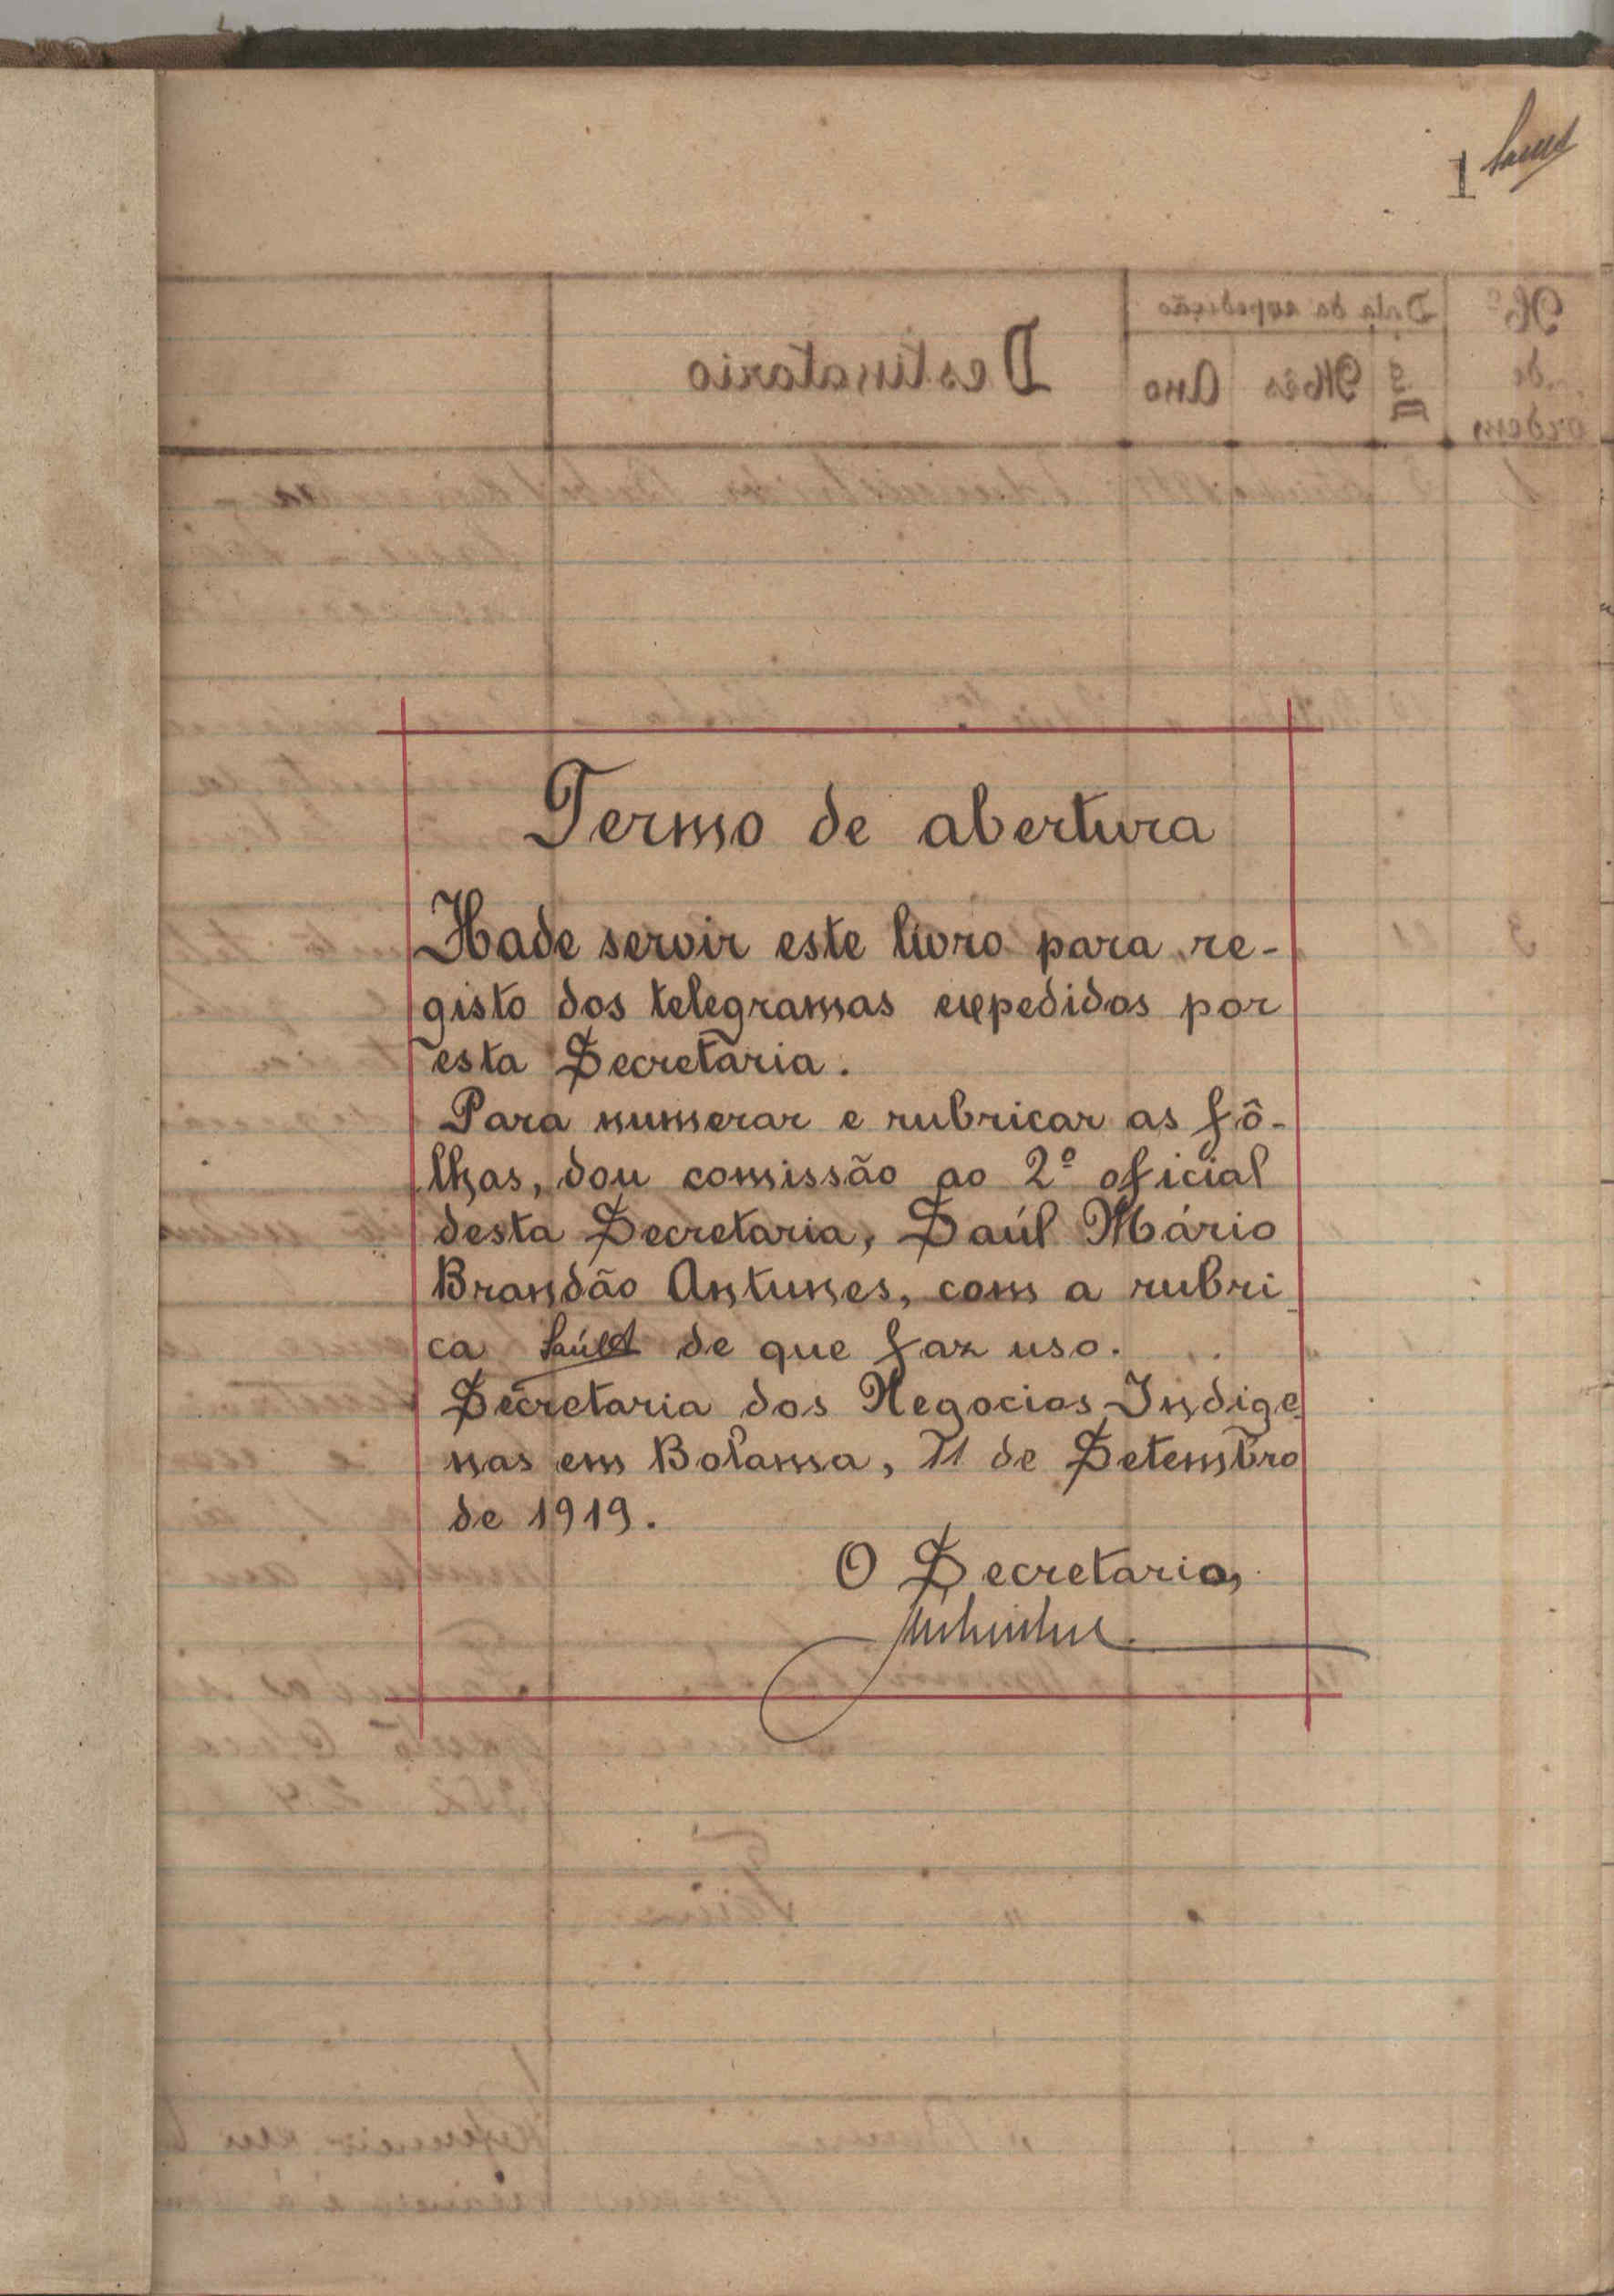 1
Termo de abertura
Hade servir este livro para re-
gisto dos telegramas expedidos por
esta Secretaria.
Para numerar e rubricar as fô-
lhas, dou comissão ao 2º oficial
desta Secretaria, Saúl Mário
Brandão Antunes, com a rubri-
ca de que faz uso.
Secretaria dos Negocios Indige-
nas em Bolama, 11 de Setembro
de 1919.
O Secretario,